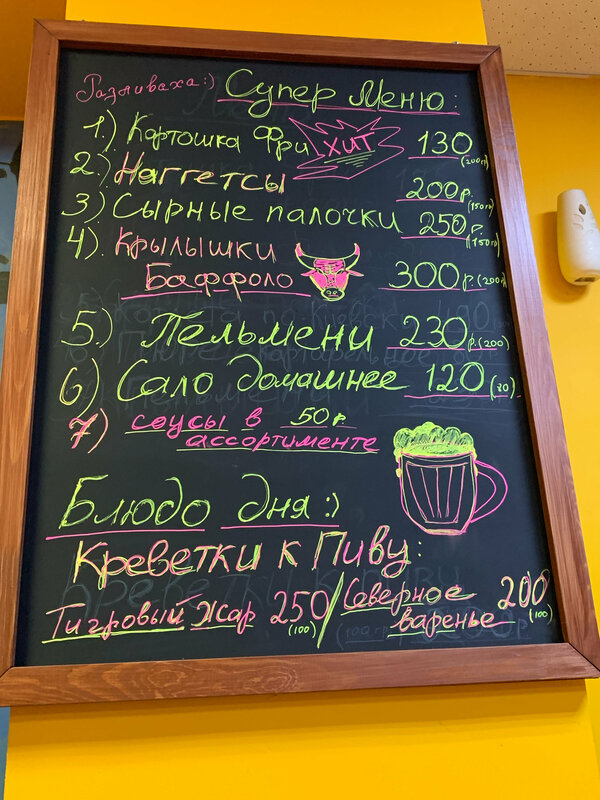 Разливаха:) Супер Меню:
1.) Картошка Фри ХИТ 130 (200гр)
2.) Наггетсы 200р. (150гр)
3.) Сырные палочки 250р. (150гр)
4.) Крылышки
Баффоло 300р. (200г)
5.) Пельмени 230р. (200)
6.) Сало домашнее 120 (30)
7) соусы в 50р.
ассортименте
Блюдо дня:)
Креветки к Пиву:
Тигровый Жар 250 (100) / Северное 200 (100)
варенье